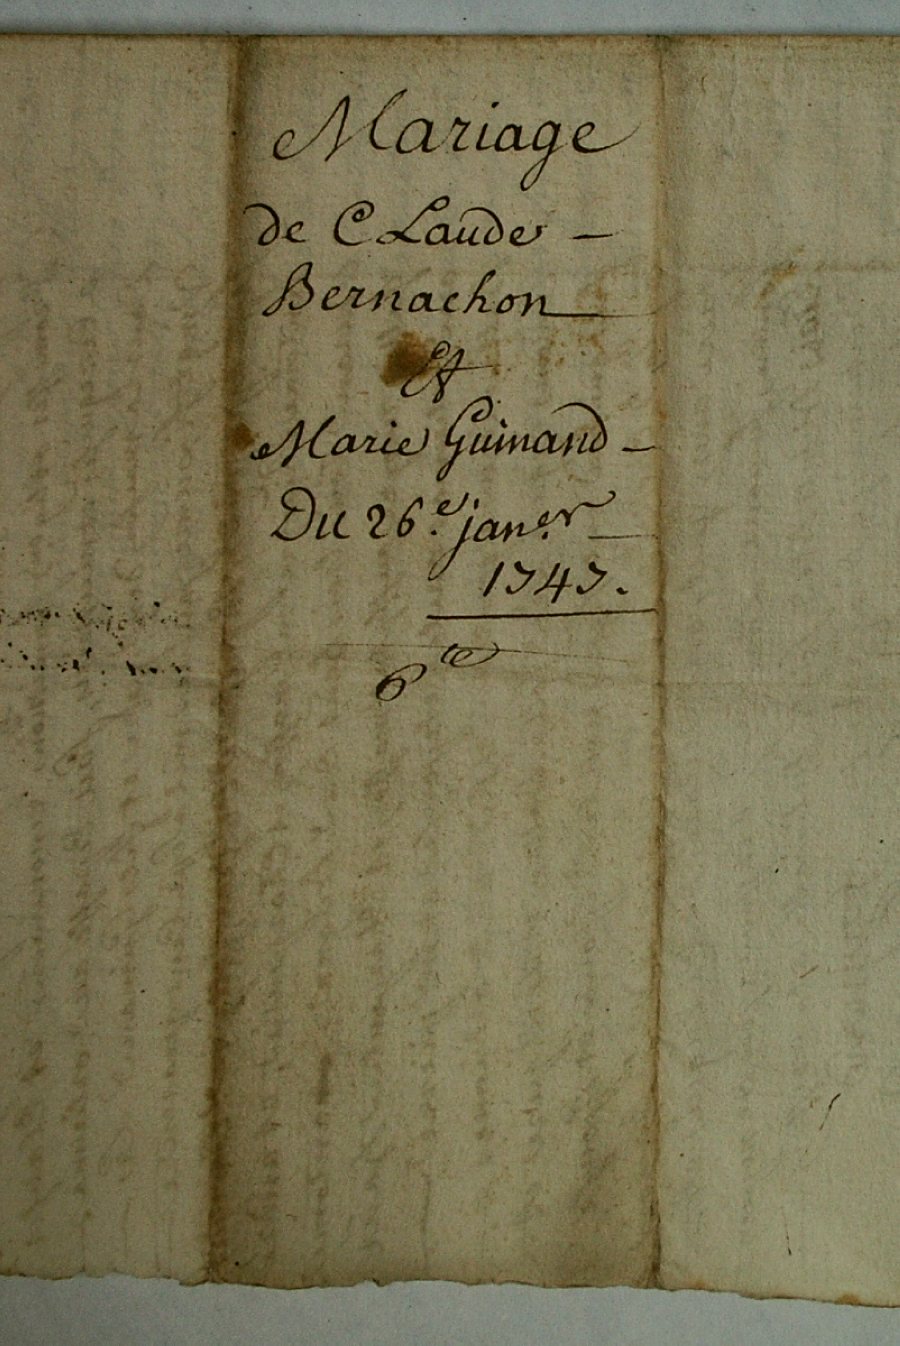 Mariage
de Claude –
Bernachon
Et
Marie Guinand –
Du 26.e jan.er
1747.
6te